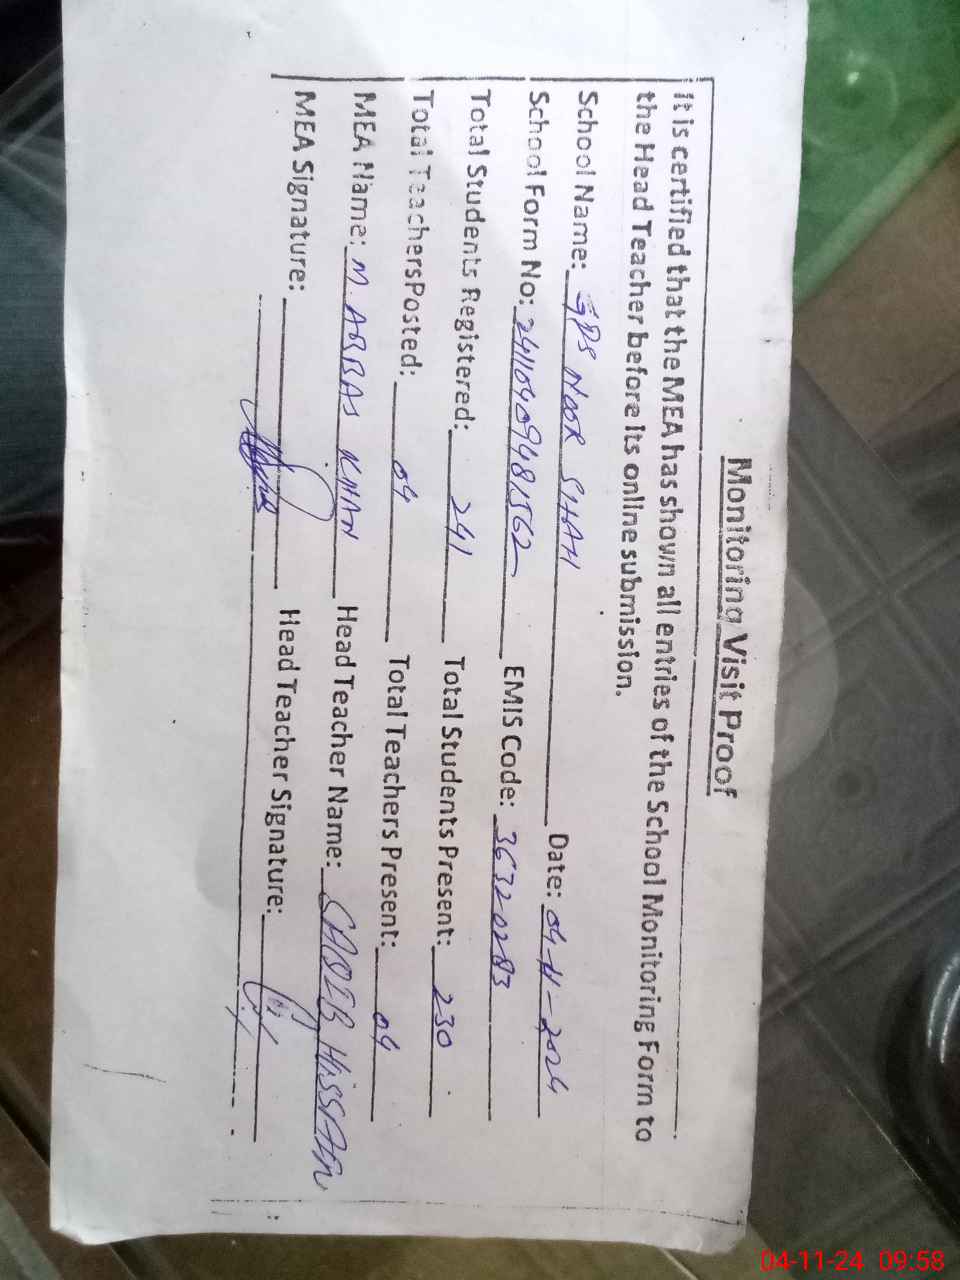 Monitoring Visit Proof
It is certified that the MEA has shown all entries of the School Monitoring Form to
the Head Teacher before its online submission.
School Name: GPS NOOR SHAH Date: 04-11-2024
School Form No: 24110409481562 EMIS Code: 36320283
Total Students Registered: 241 Total Students Present: 230
Total TeachersPosted: 04 Total Teachers Present: 04
MEA Name: M. ABBAS KHAN Head Teacher Name: SABIR HUSSAIN
MEA Signature: Head Teacher Signature:
04-11-24 09:58